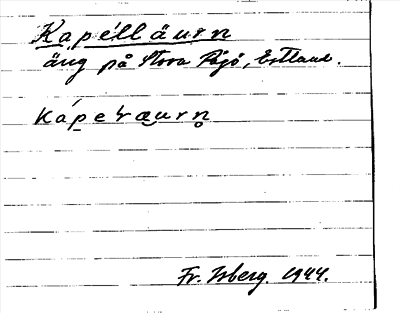 Kapélläurn
äng på Stora Rågö, Estland.
kápeꞎæu̯rn̥
Fr. Isberg. 1944.